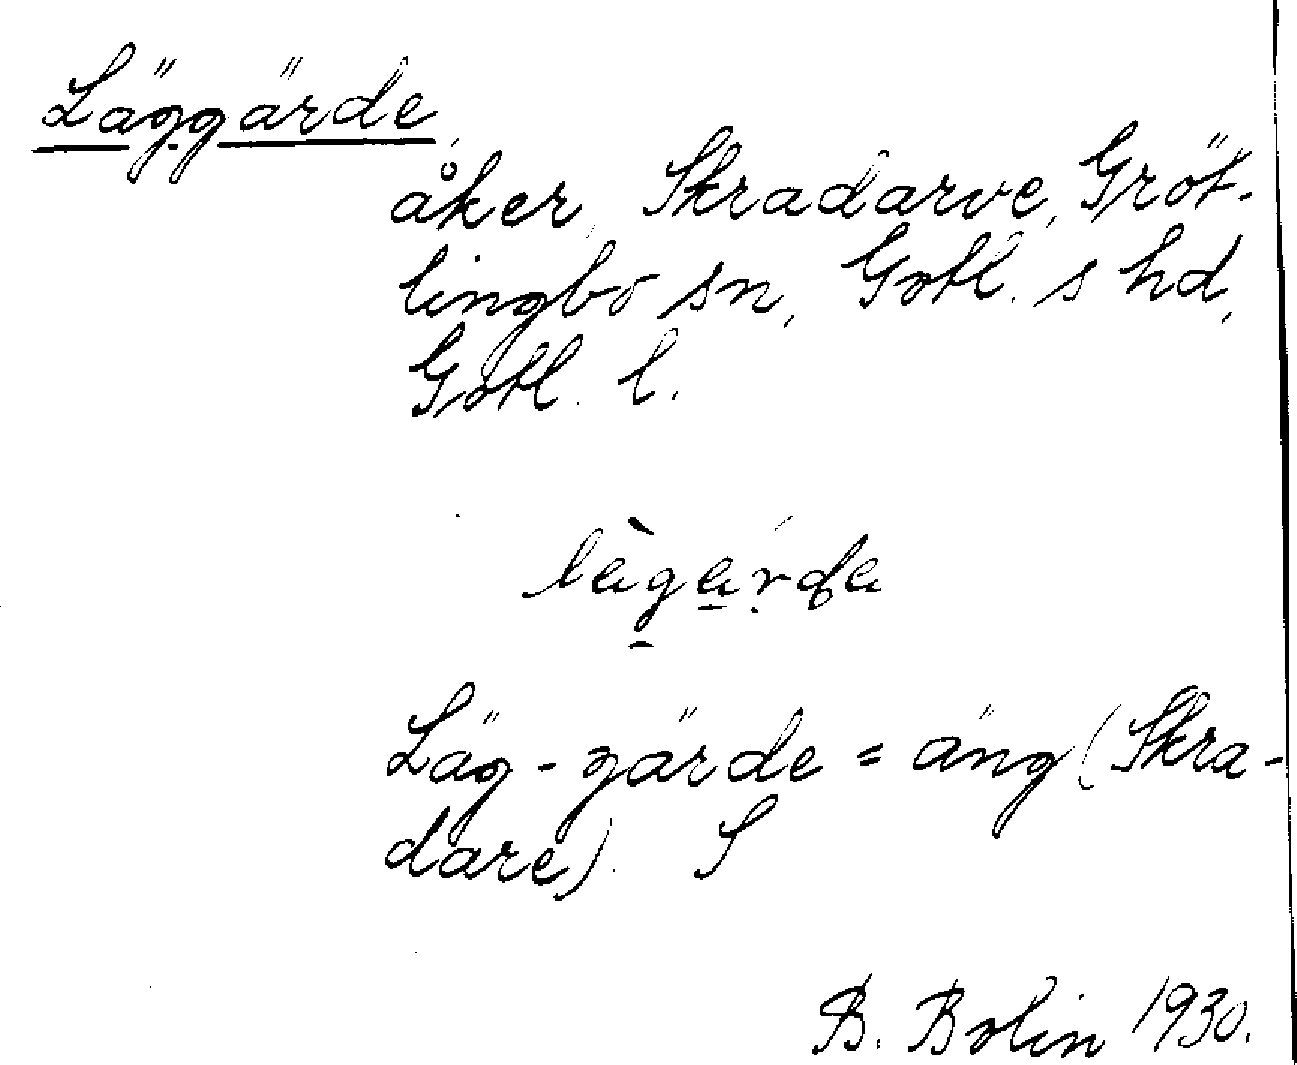 Läggärde
åker, Skradarve, Gröt-
lingbo sn, Gotl. s hd,
Gotl. l.
Läg-gärde = äng (Skra-
dare). S
B. Bolin 1930.